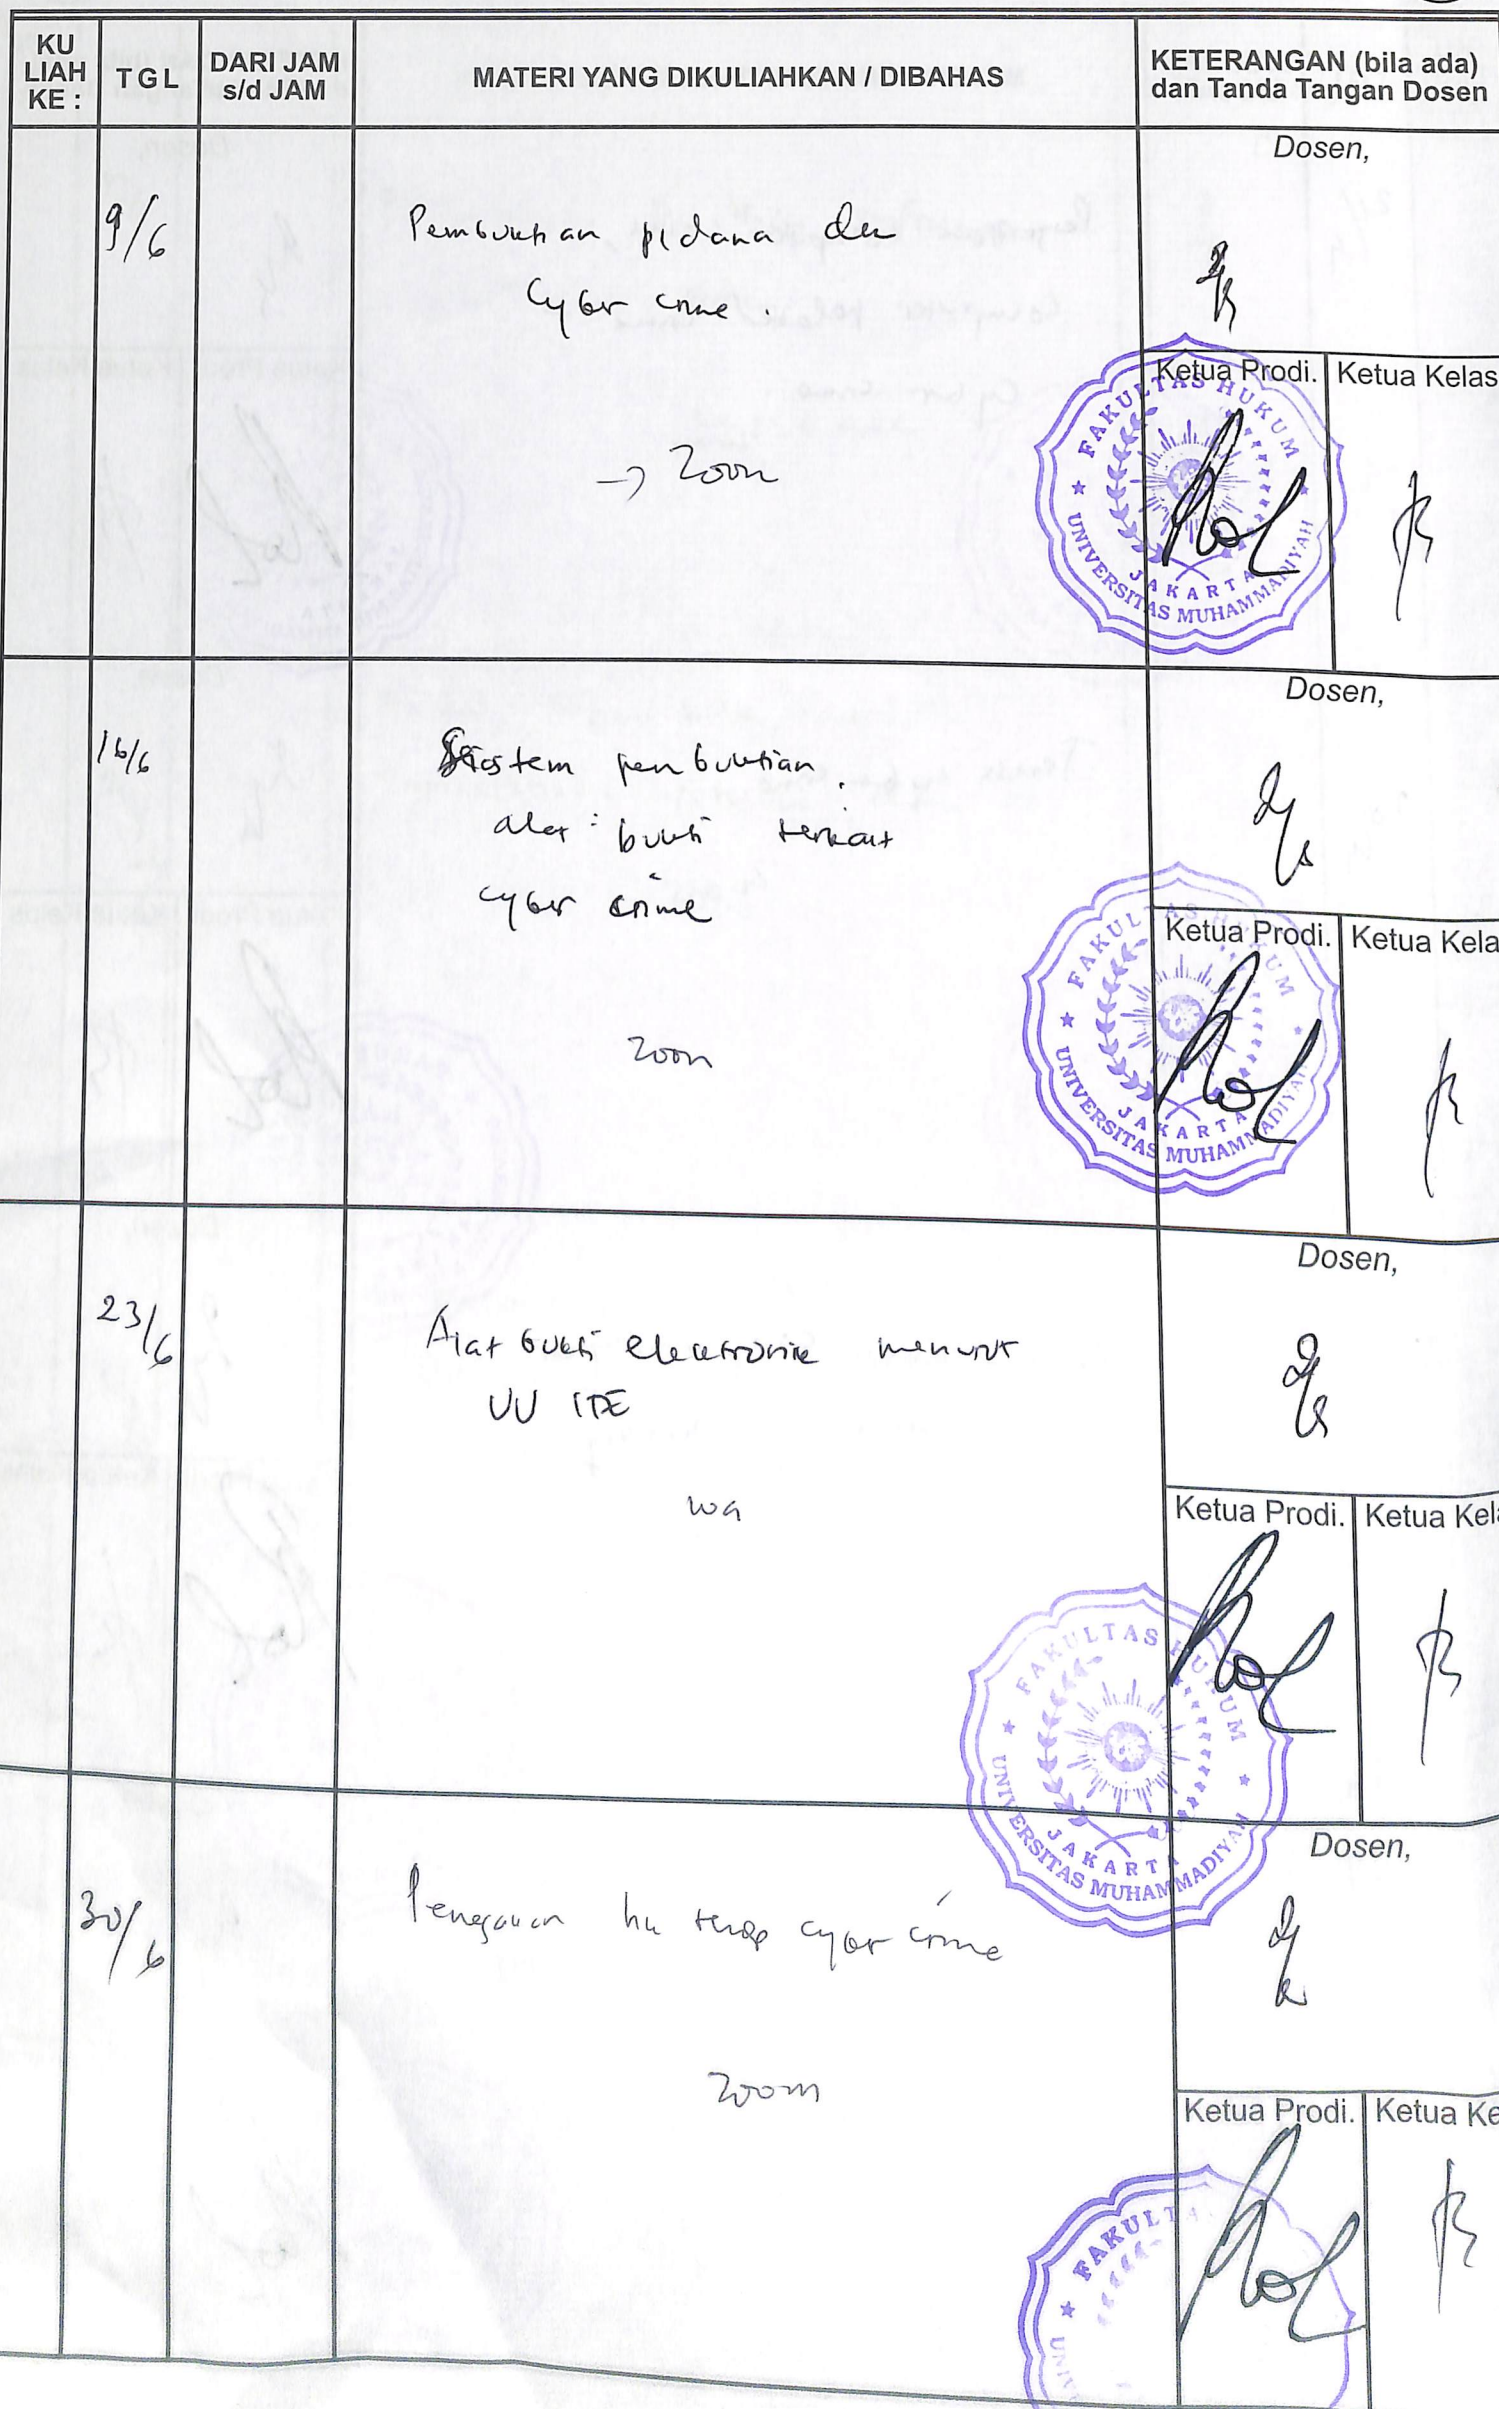 KU
LIAH
KE :
TGL
DARI JAM
s/d JAM
MATERI YANG DIKULIAHKAN / DIBAHAS
KETERANGAN (bila ada)
dan Tanda Tangan Dosen
Dosen,
9/6
Pembuktian pidana dan
Cyber crime.
→ Zoom
Ketua Prodi.
Ketua Kelas
FAKULTAS HUKUM
JAKARTA
UNIVERSITAS MUHAMMADIYAH
Dosen,
16/6
Sistem pembuktian
alat bukti terkait
cyber crime
Zoom
Ketua Prodi.
Ketua Kela
FAKULTAS HUKUM
JAKARTA
UNIVERSITAS MUHAMMADIYAH
Dosen,
23/6
Alat bukti elektronik menurut
UU ITE
wa
Ketua Prodi.
Ketua Kela
FAKULTAS HUKUM
JAKARTA
UNIVERSITAS MUHAMMADIYAH
Dosen,
30/6
hu cyber crime
Zoom
Ketua Prodi.
Ketua Ke
FAKULTA
UNIV